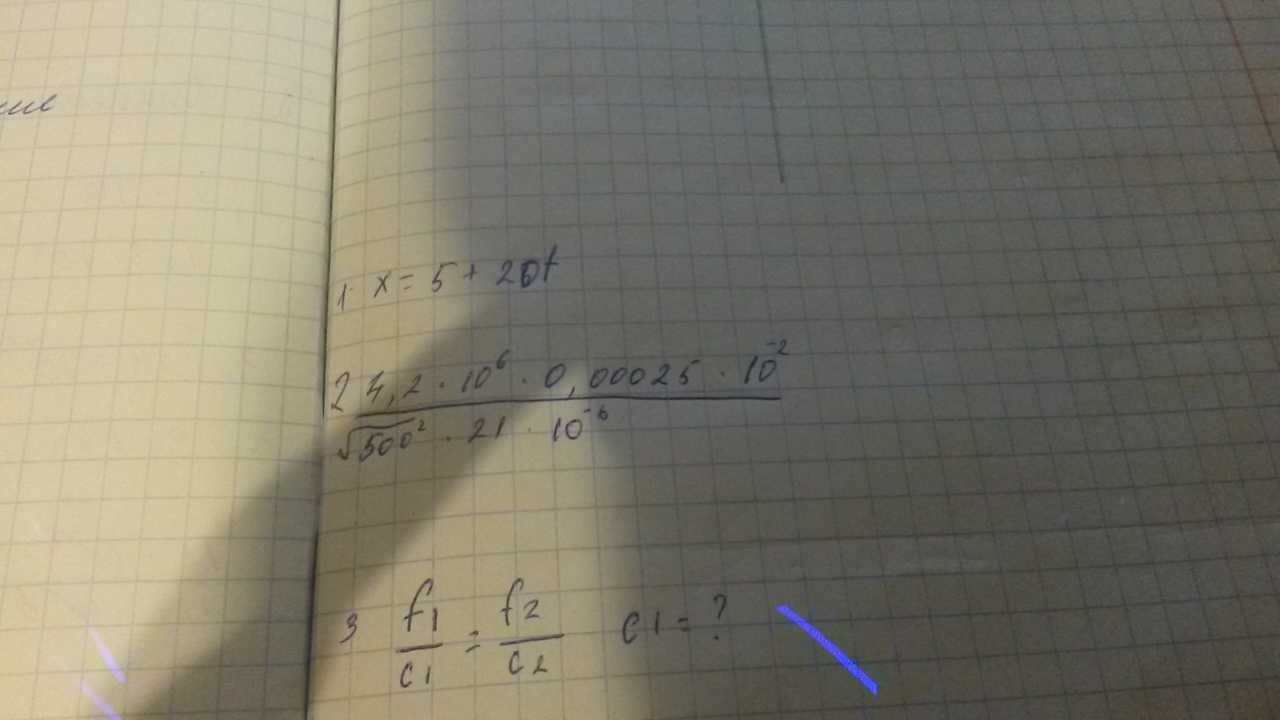 1. x = 5 + 20t
2 4,2 · 10⁶ · 0,00025 · 10⁻²
√500² · 21 · 10⁻⁶
3 f1/c1 = f2/c2 c1 = ?